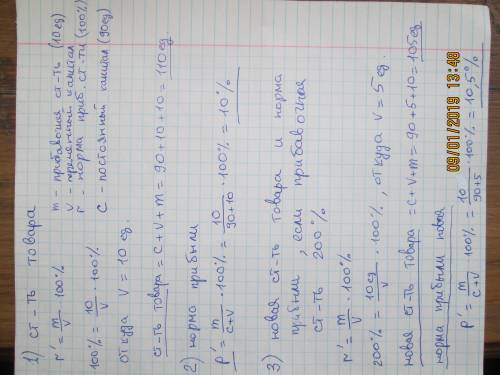 1) ст-ть товара
m - прибавочная ст-ть (10 ед)
v - переменный капитал
r - норма приб. ст-ти (100%)
c - постоянный капитал (90ед)
r' = m/v · 100%
100% = 10/v · 100%
откуда v = 10 ед.
ст-ть товара = c + v + m = 90 + 10 + 10 = 110 ед
2) норма прибыли
p' = m/c+v · 100% = 10/90+10 · 100% = 10%
3) новая ст-ть товара и норма
прибыли, если прибавочная
ст-ть 200%
r' = m/v · 100%
200% = 10 ед/v · 100%, откуда v = 5 ед.
новая ст-ть товара = c + v + m = 90 + 5 + 10 = 105 ед
норма прибыли новая
p' = m/c+v · 100% = 10/90+5 · 100% = 10,5%
09/01/2019 13:48